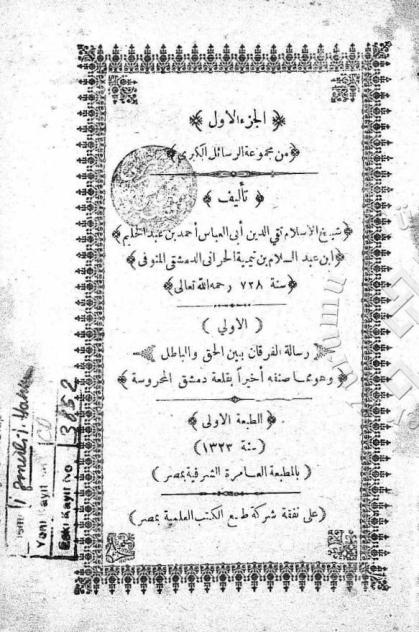 ﴿ الجزء الاول ﴾
﴿ من مجموعة الرسائل الكبرى ﴾
﴿ تأليف ﴾
﴿ شيخ الاسلام تقي الدين أبى العباس أحمد بن عبد الحليم ﴾
﴿ ابن عبد السلام بن تيمية الحرانى الدمشقى المتوفى ﴾
﴿ سنة ٧٢٨ رحمه الله تعالى ﴾
( الاولي )
رسالة الفرقان بين الحق والباطل
﴿ وهو مما صنفه أخيراً بقلعة دمشق المحروسة ﴾
﴿ الطبعة الاولى ﴾
( سنة ١٣٢٣ )
( بالمطبعة العامرة الشرفية بمصر )
( على نفقة شركة طبع الكتب العلمية بمصر )
Yeni Kayıt No
Eski Kayıt No 3852